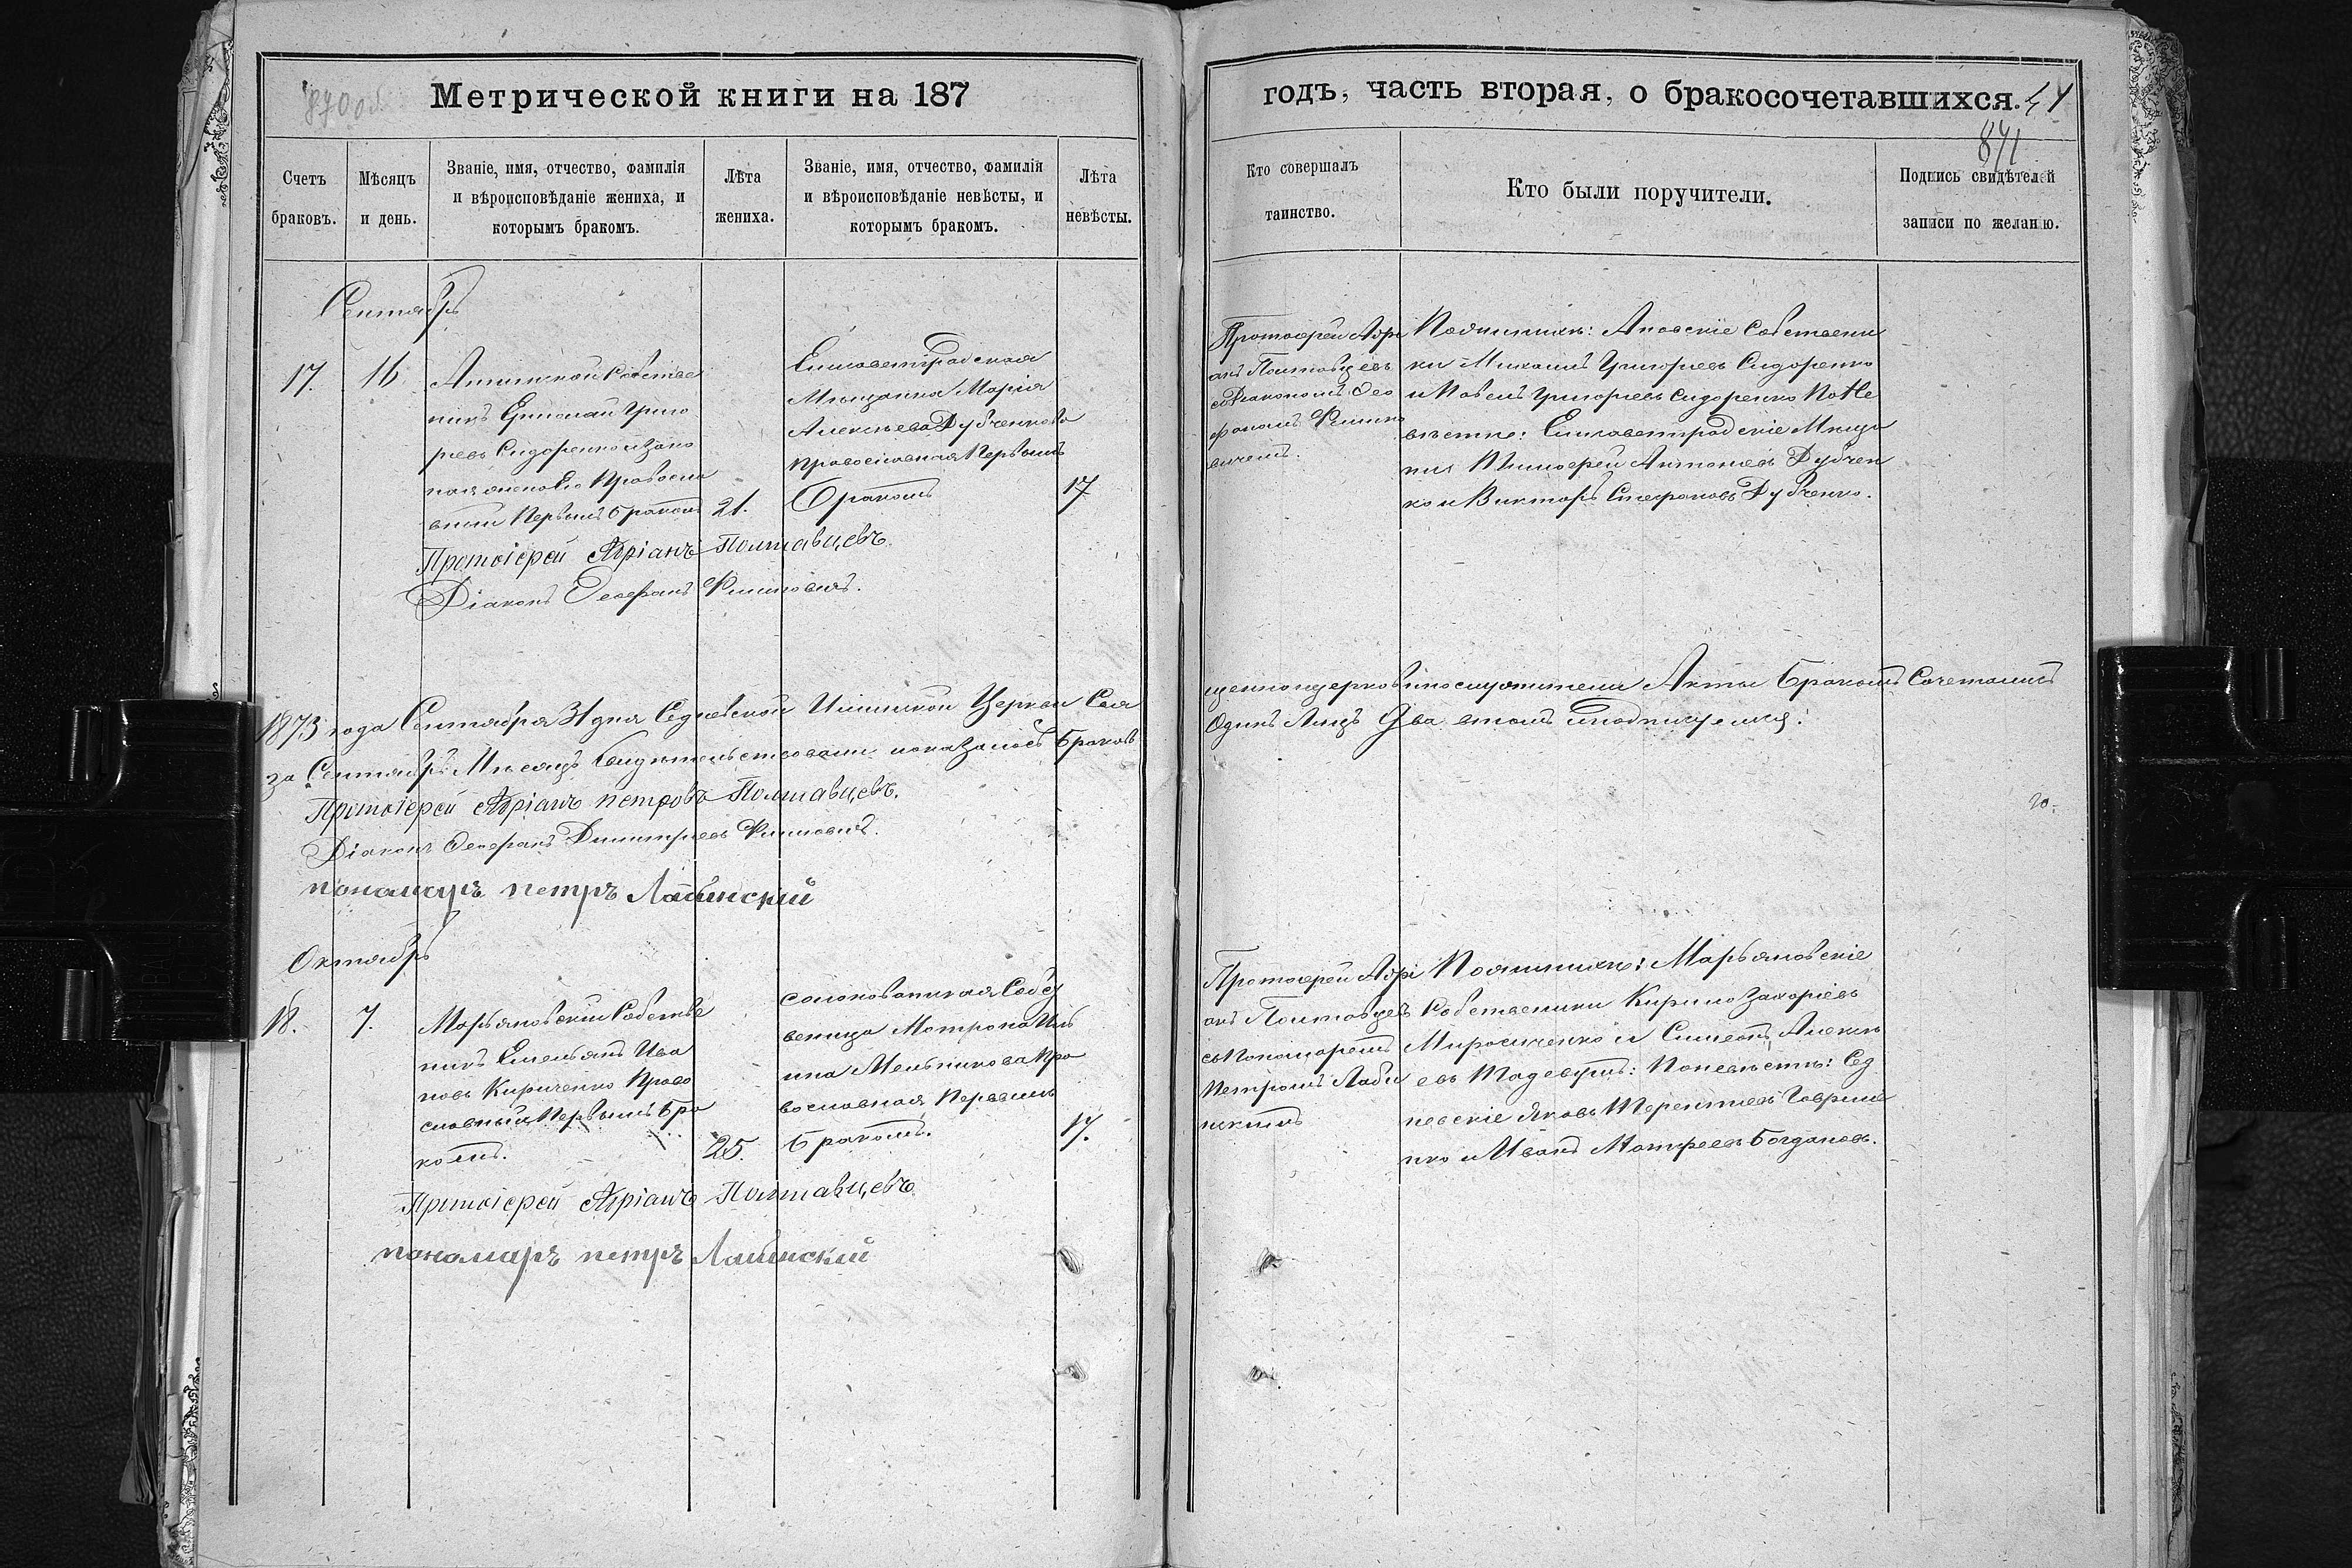 Метрической книги на 187
годъ, часть вторая, о бракосочетавшихся.
841
Счетъ браковъ.
Мѣсяцъ и день.
Званіе, имя, отчество, фамилія
и вѣроисповѣданіе жениха, и
которымъ бракомъ.
Лѣта жениха.
Званіе, имя, отчество, фамилія
и вѣроисповѣданіе невѣсты, и
которымъ бракомъ.
Лѣта невѣсты.
Кто совершалъ
таинство.
Кто были поручители.
Подпись свидѣтелей
записи по желанію.
Сентябрь
17.
16
никъ Ермолай Григо
рьевъ Сидоренко
Православ
вный Первымъ бракомъ
21.
Елисаветградская
Мѣщанка Марія
Алексѣева Дубченкова
православная Первымъ
Бракомъ
17
Протоерей Адрі
анъ Полтавцевъ
съ Діакономъ Ѳео
фаномъ
По женихѣ: Собственни
ки Михаилъ Григорьевъ Сидоренко
и Павелъ Григорьевъ Сидоренко По Не
вѣстѣ: Елисаветградскіе Мѣща
не Тимоѳей Антоновъ Дубчен
ко и Викторъ Стефановъ Дубченко.
Протоіерей Адріанъ Полтавцевъ
Діаконъ Ѳеофанъ
1873 года Сентября 31 дня Седневской Церкви Свя
щенноцерковнослужители Акты Бракомъ Сочетались
за Сентябрь Мѣсяцъ Свидѣтельствовали показалось Браковъ
Одинъ Лицъ Два въ томъ и подписуемся:
Протоіерей Адріанъ Петровъ Полтавцевъ.
Діаконъ Ѳеофанъ Димитріевъ
пономарь петръ Лабинскій
Октябрь
18.
7.
Марьяновскій Собстве
никъ Емельянъ Ива
новъ Кириченко Право
славный Первымъ Бра
комъ.
25.
Собст
венница Матрона Иль
ина Мельникова Пра
вославная Первымъ
Бракомъ.
17.
Протоерей Адрі
анъ Полтавцевъ
съ Пономаремъ
Петромъ Лаби
нскимъ
По женихѣ: Марьяновскіе
Собственники Кирило Захаріевъ
Мирошченко и Симеонъ Алексѣ
евъ По невѣстѣ: Сед
невскіе Яковъ Терентьевъ Гаврилен
нко и Иванъ Матфеевъ Богдановъ.
Протоіерей Адріанъ Полтавцевъ
пономарь петръ Лабинскій